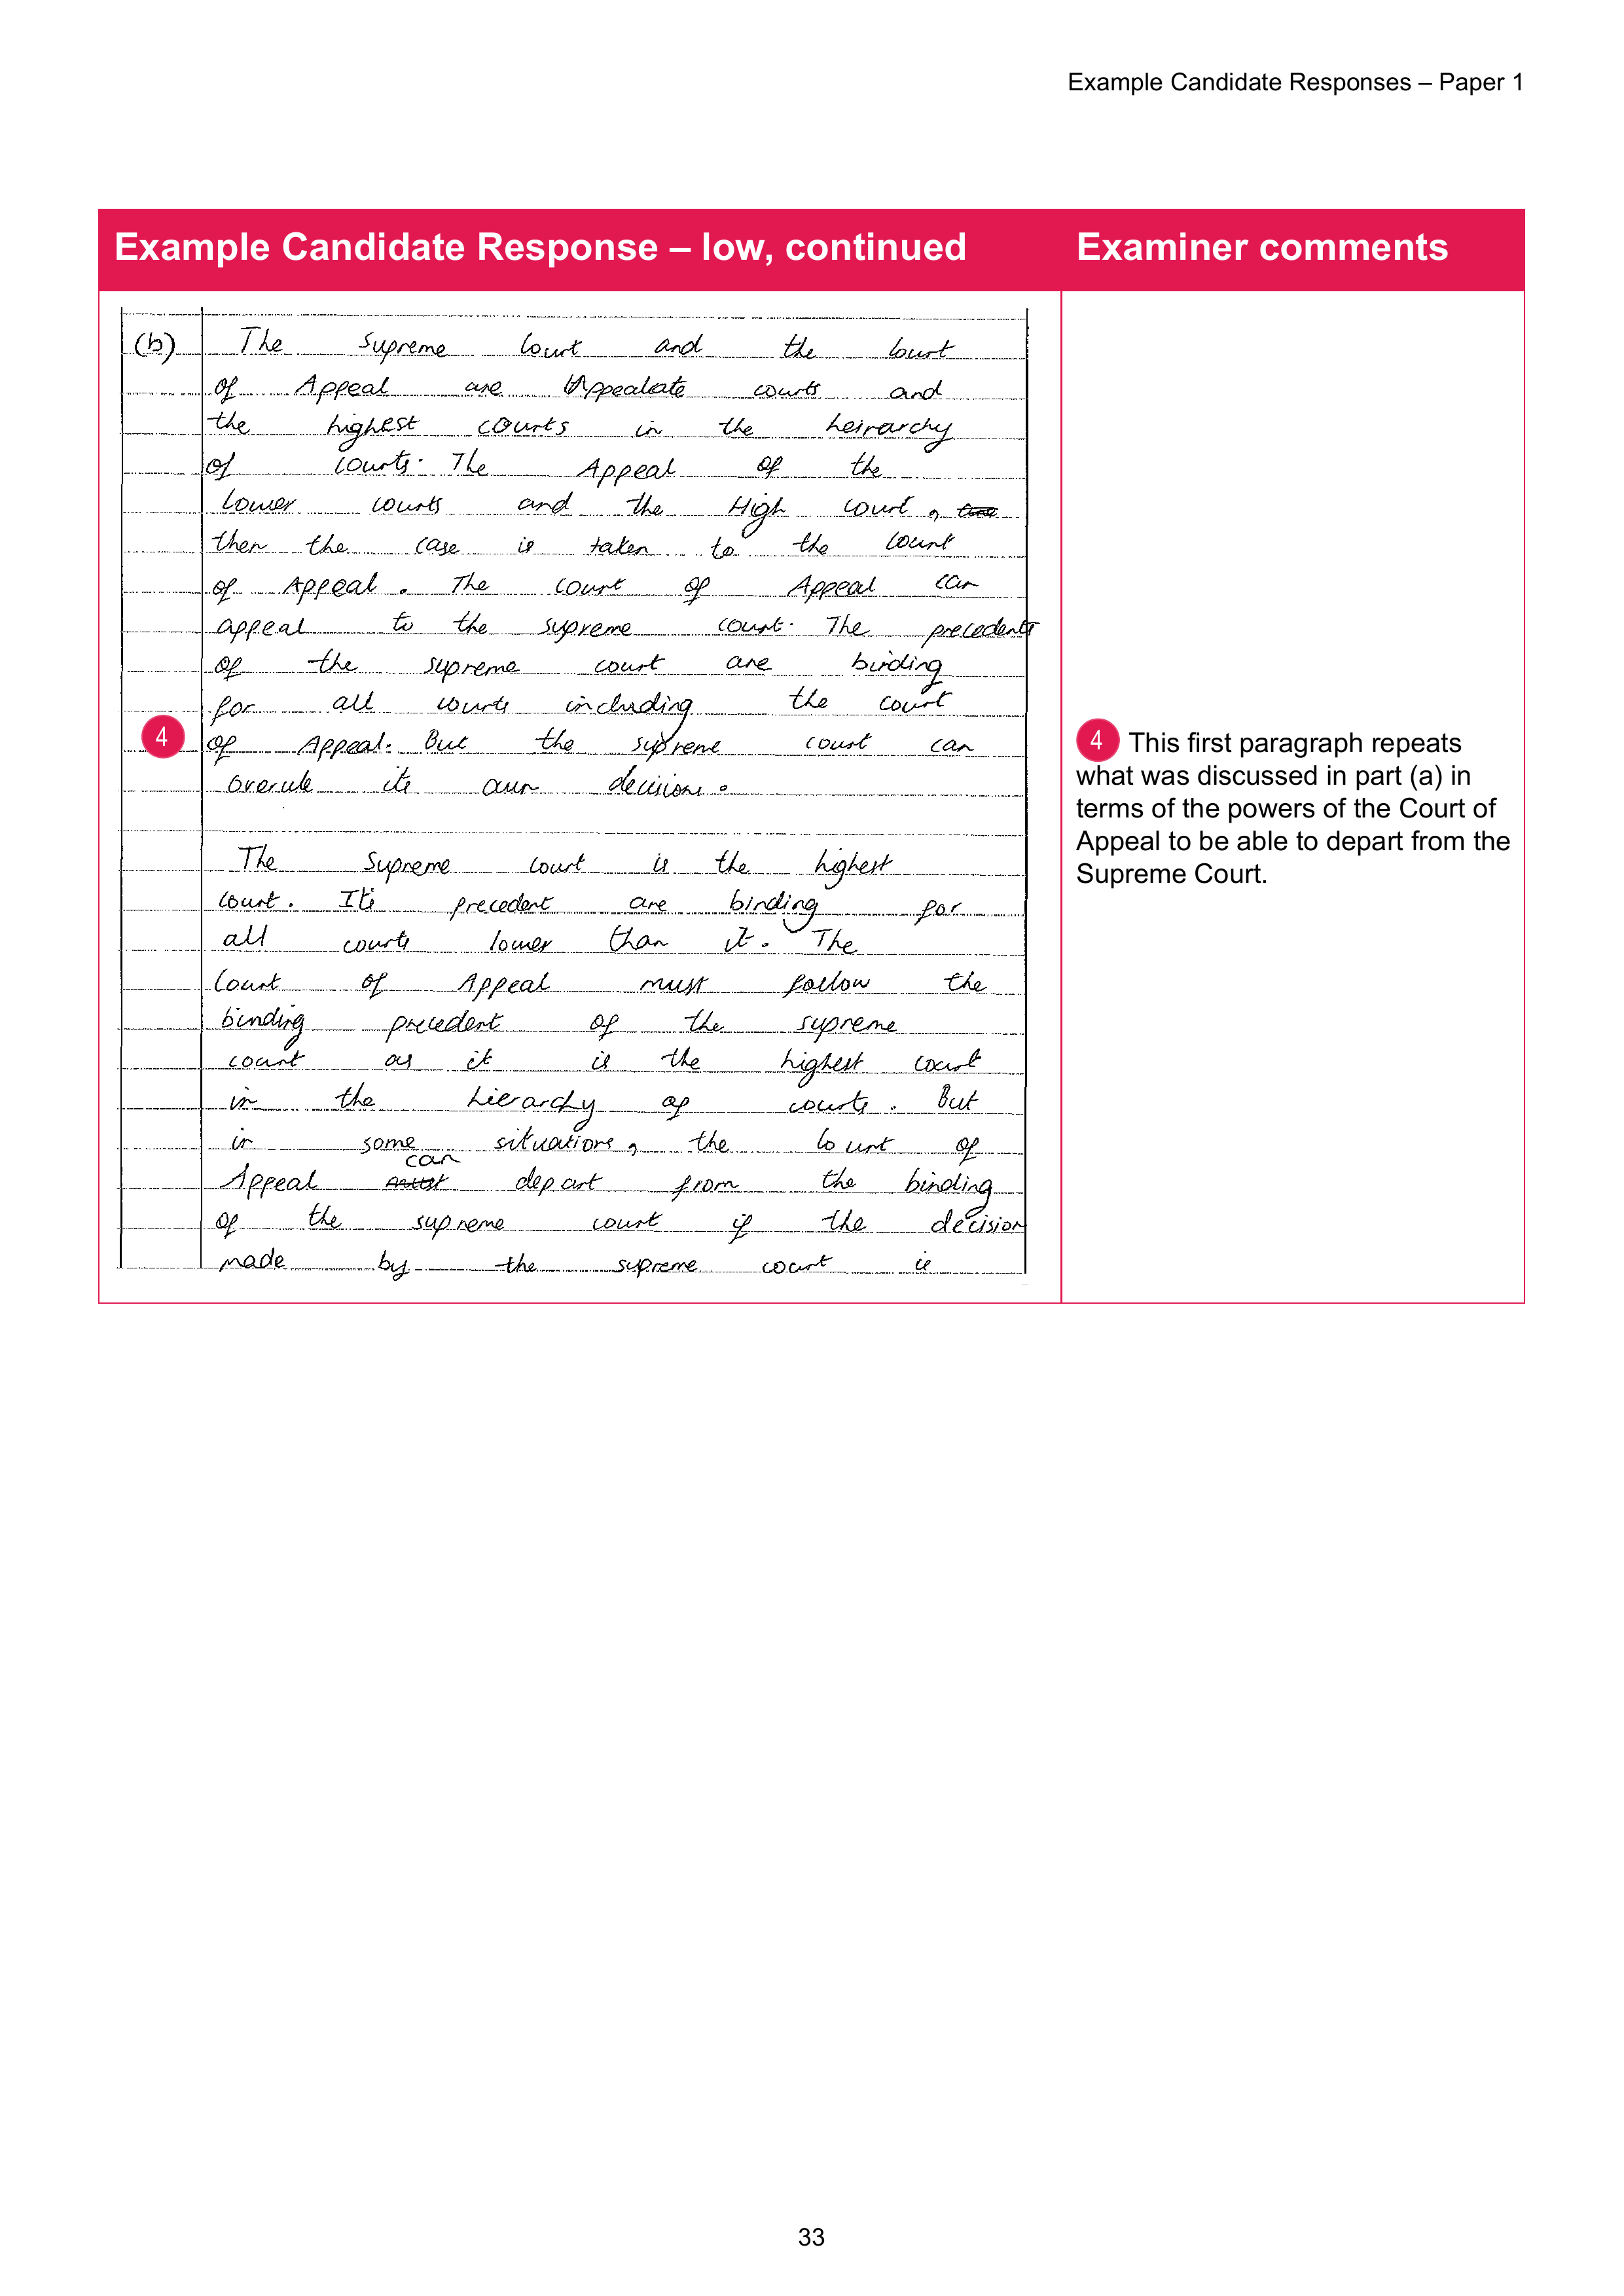 Example Candidate Responses – Paper 1
Example Candidate Response – low, continued
Examiner comments
(b) The Supreme Court and the Court
of Appeal are Appealate courts and
the highest courts in the heirarchy
of courts. The Appeal of the
lower courts and the High Court,
then the case is taken to the Court
of Appeal. The Court of Appeal can
appeal to the supreme court. The precedents
of the supreme court are binding
for all courts including the court
4 of Appeal. But the supreme court can
overule its own decisions.
The Supreme court is the highest
court. It's precedent are binding for
all courts lower than it. The
Court of Appeal must follow the
binding precedent of the supreme
court as it is the highest court
in the hierarchy of courts. But
in some situations, the Court of
Appeal can depart from the binding
of the supreme court if the decision
made by the supreme court is
4 This first paragraph repeats
what was discussed in part (a) in
terms of the powers of the Court of
Appeal to be able to depart from the
Supreme Court.
33